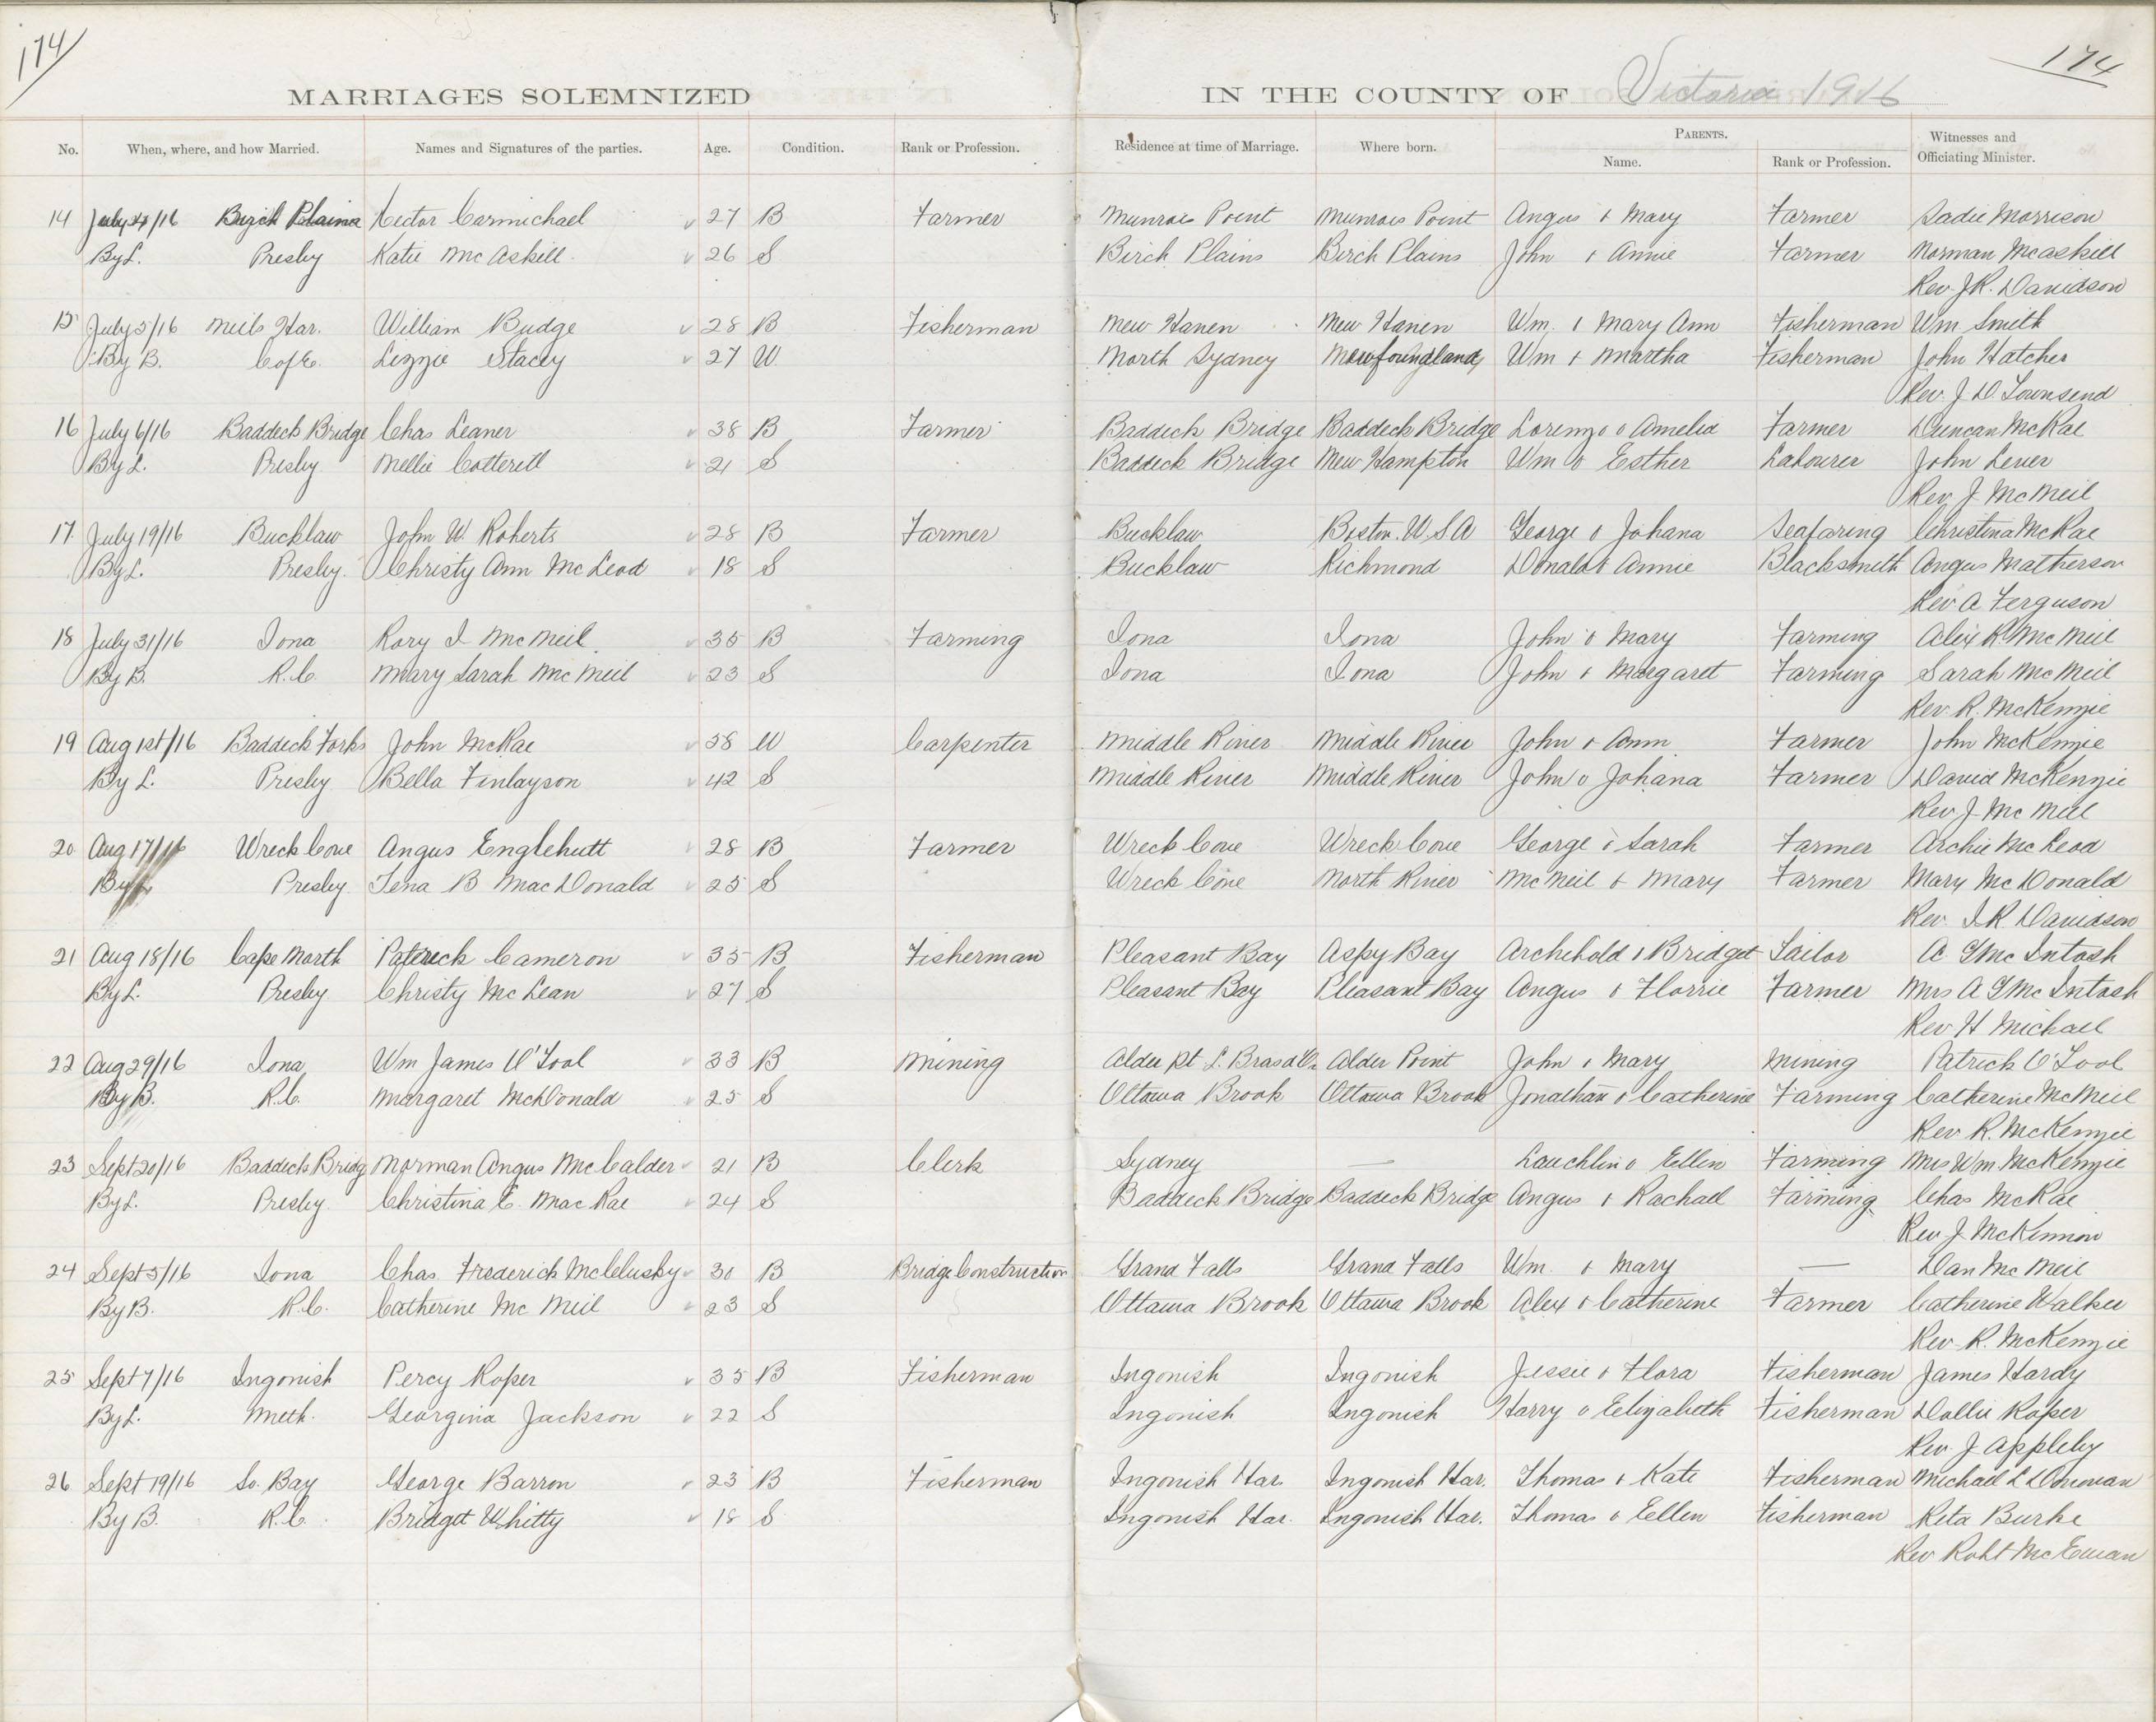 174 174
MARRIAGES SOLEMNIZED IN THE COUNTY OF Victoria 1916
No. When, where, and how Married. Names and Signatures of the parties. Age. Condition. Rank or Profession. Residence at time of Marriage. Where born. PARENTS. Name. Rank or Profession. Witnesses and Officiating Minister.
14 July /16 Birch Plains Hector Carmichael 27 B Farmer Munroes Point Munroes Point Angus & Mary Farmer Sadie Morrison
By L. Presby Katie McAskill 26 S Birch Plains Birch Plains John & Annie Farmer Norman McAskill
Rev. J.R. Davidson
15 July 5/16 Neils Har. William Budge 28 B Fisherman New Haven New Haven Wm. & Mary Ann Fisherman Wm. Smith
By B. C of E. Lizzie Stacey 27 W North Sydney Newfoundland Wm & Martha Fisherman John Hatcher
Rev. J D. Townsend
16 July 6/16 Baddeck Bridge Chas Leaner 38 B Farmer Baddeck Bridge Baddeck Bridge Lorenzo & Amelia Farmer Duncan McRae
By L. Presby Nellie Cotterell 21 S Baddeck Bridge New Hampton Wm & Esther Labourer John Lever
Rev J. McNeil
17 July 19/16 Bucklaw John W. Roberts 28 B Farmer Bucklaw Boston. U S A George & Johana Seafaring Christina McRae
By L. Presby. Christy Ann McLeod 18 S Bucklaw Richmond Donald & Annie Blacksmith Angus Matherson
Rev. A Ferguson
18 July 31/16 Iona Rory J. McNeil 35 B Farming Iona Iona John & Mary Farming Alex R McNeil
By B. R.C. Mary Sarah McNeil 23 S Iona Iona John & Margaret Farming Sarah McNeil
Rev. R. McKenzie
19 Aug 1st/16 Baddeck Forks John McRae 58 W Carpenter Middle River Middle River John & Ann Farmer John McKenzie
By L. Presby Bella Finlayson 42 S Middle River Middle River John & Johana Farmer David McKenzie
Rev. J. McNeil
20 Aug 17/16 Wreck Cove Angus Englehutt 28 B Farmer Wreck Cove Wreck Cove George & Sarah Farmer Archie McLeod
By L Presby. Tena B MacDonald 25 S Wreck Cove North River McNeil & Mary Farmer Mary McDonald
Rev. J.R Davidson
21 Aug 18/16 Cape North Patrick Cameron 35 B Fisherman Pleasant Bay Aspy Bay Archibold & Bridget Sailor A. G McIntosh
By L. Presby Christy McLean 27 S Pleasant Bay Pleasant Bay Angus & Florrie Farmer Mrs A G McIntosh
Rev. H Michael
22 Aug 29/16 Iona Wm James O'Tool 33 B Mining Alder pt L. Bras d'Or Alder Point John & Mary Mining Patrick O'Tool
By B. R.C. Margaret McDonald 25 S Ottawa Brook Ottawa Brook Jonathan & Catherine Farming Catherine McNeil
Rev R. McKenzie
23 Sept 20/16 Baddeck Bridg Norman Angus McCalder 21 B Clerk Sydney — Lauchlin & Ellen Farming Mrs Wm. McKenzie
By L. Presby. Christina E. MacRae 24 S Baddeck Bridge Baddeck Bridge Angus & Rachael Farming Chas McRae
Rev J. McKinnon
24 Sept 5/16 Iona Chas. Frederick McClusky 30 B Bridge Construction Grand Falls Grand Falls Wm. & Mary — Dan McNeil
By B. R.C. Catherine McNeil 23 S Ottawa Brook Ottawa Brook Alex & Catherine Farmer Catherine Walker
Rev. R. McKenzie
25 Sept 7/16 Ingonish Percy Roper 35 B Fisherman Ingonish Ingonish Jessie & Flora Fisherman James Hardy
By L. Meth. Georgina Jackson 22 S Ingonish Ingonish Harry & Elizabeth Fisherman Dollie Roper
Rev. J Appleby
26 Sept 19/16 So. Bay George Barron 23 B Fisherman Ingonish Har. Ingonish Har. Thomas & Kate Fisherman Michael L Donovan
By B. R.C. Bridget Whitty 18 S Ingonish Har. Ingonish Har. Thomas & Ellen Fisherman Rita Burke
Rev Robt McEwan